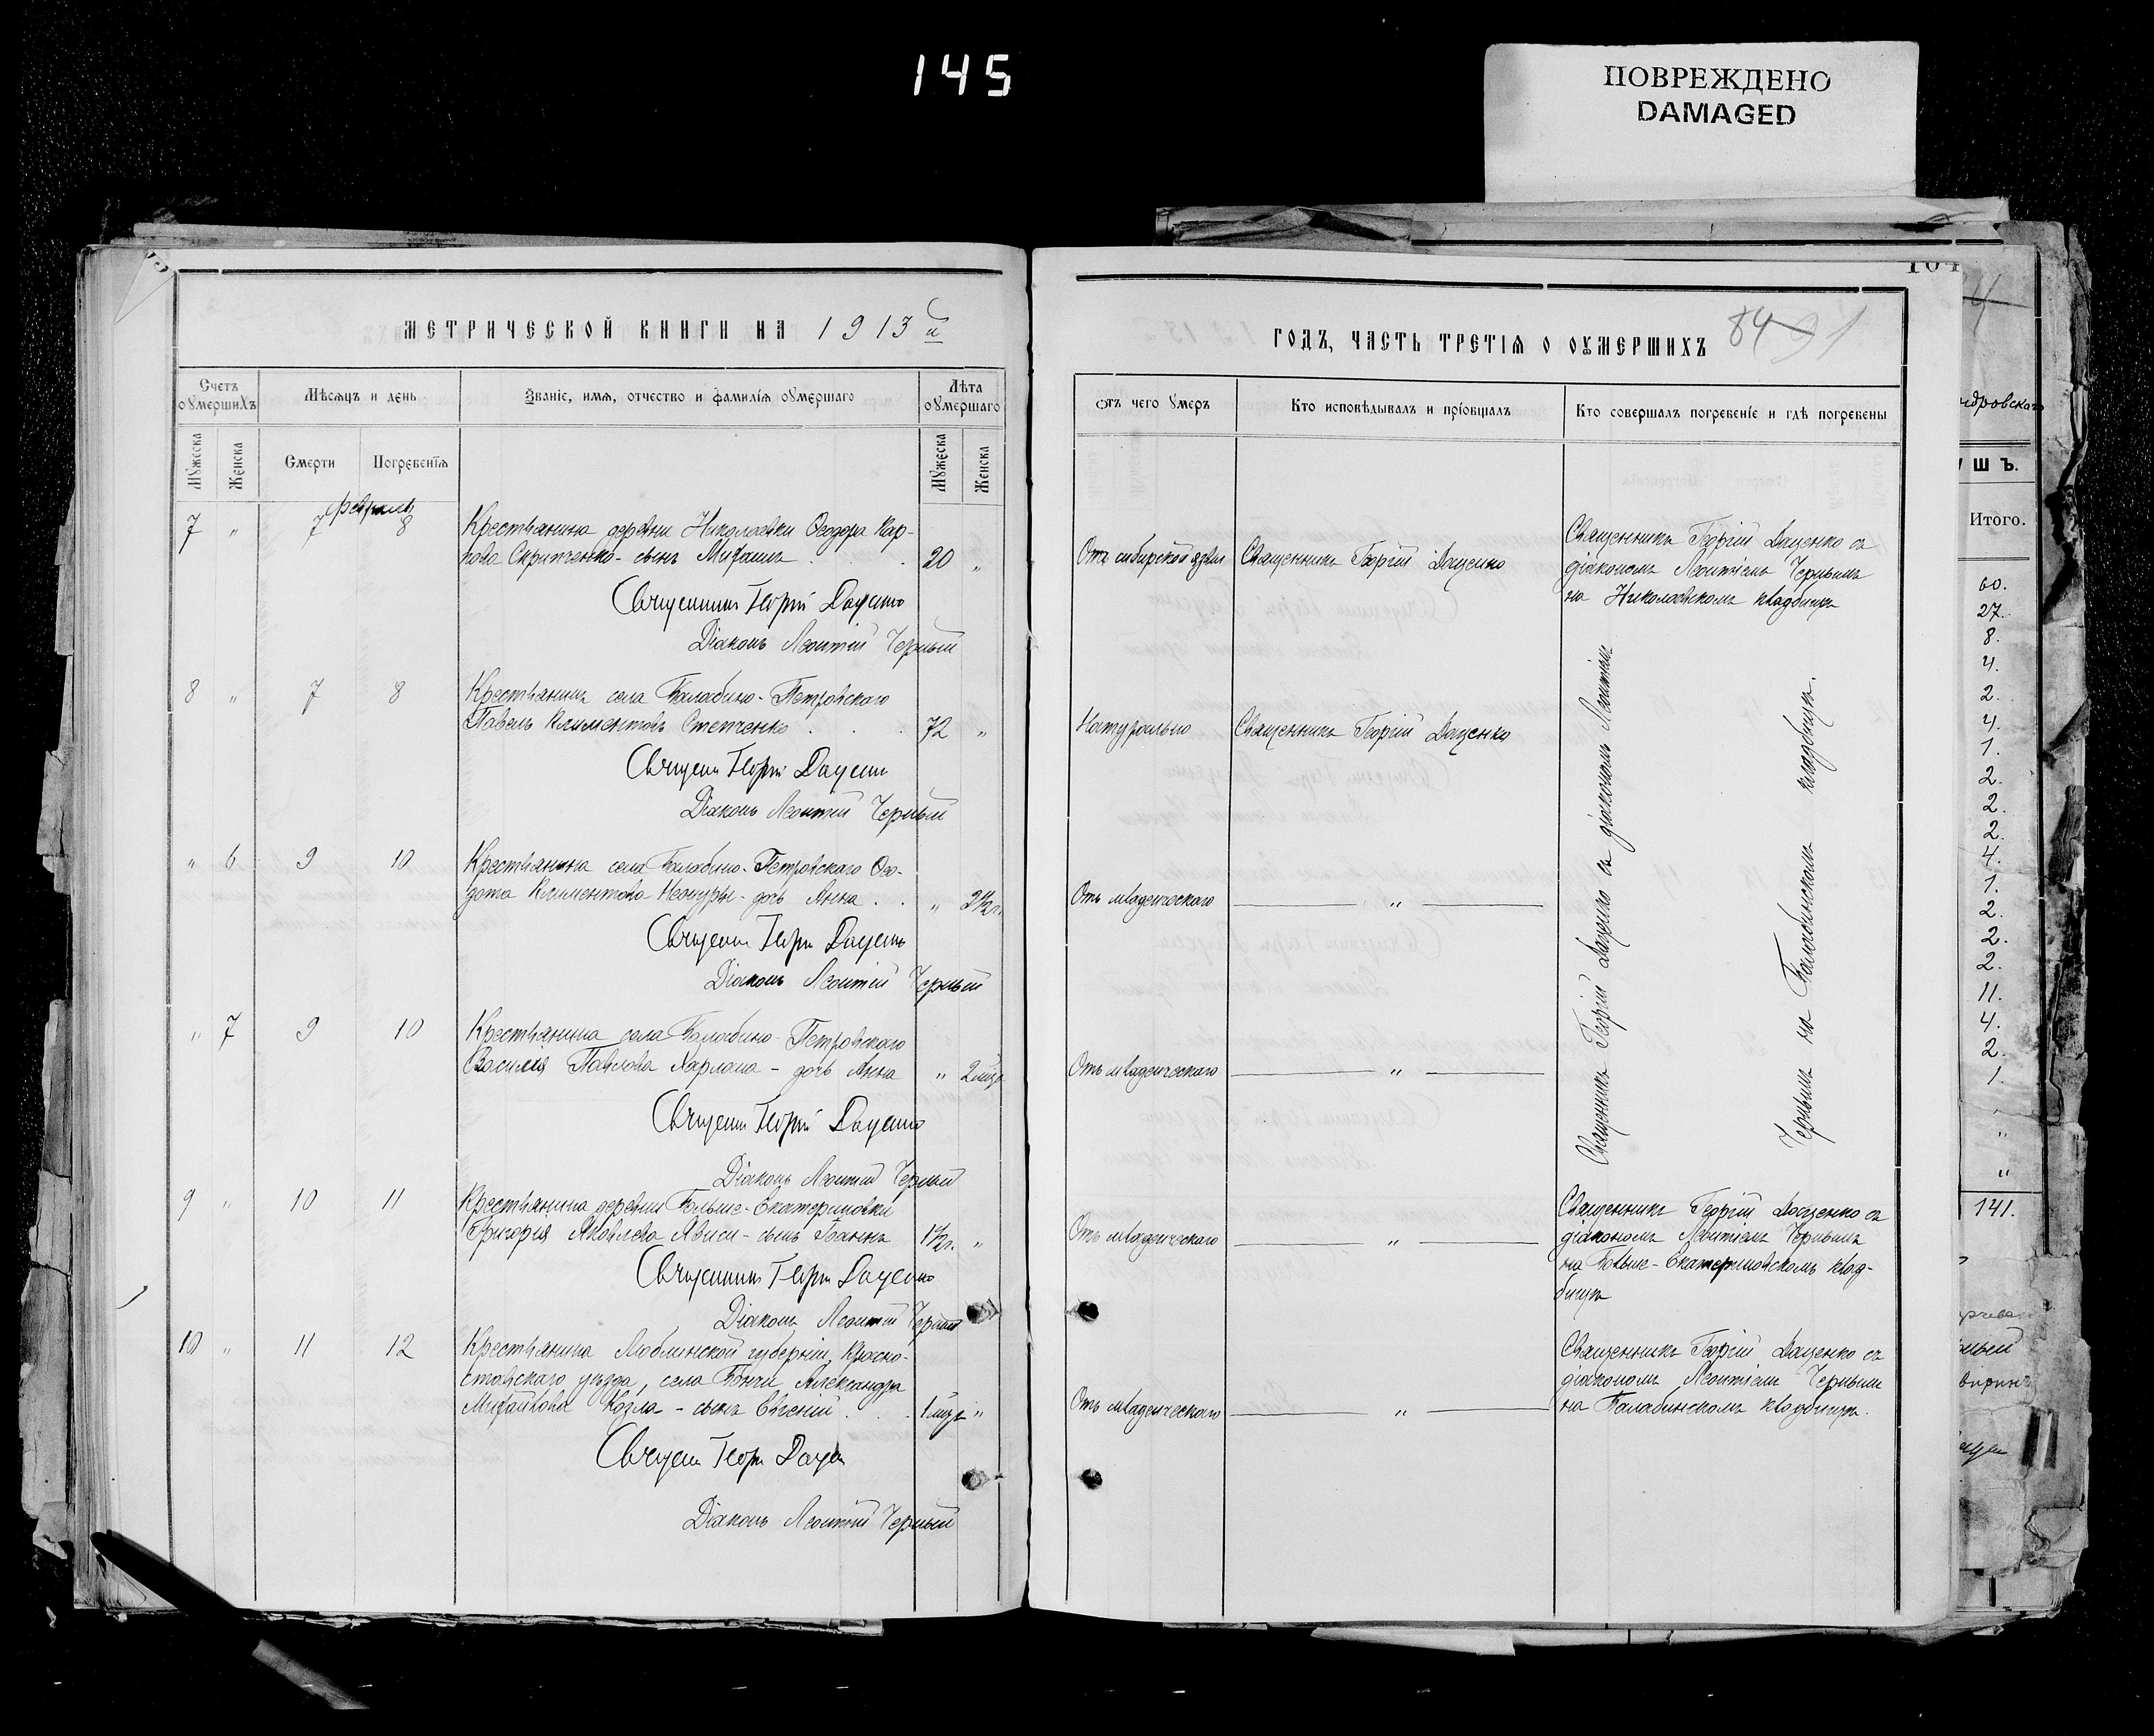 145
ПОВРЕЖДЕНО
DAMAGED
МЕТРИЧЕСКОЙ КНИГИ НА 1913 й
Счетъ оумершихъ
Мѣсяцъ и день
Званіе, имя, отчество и фамилія оумершаго
Лѣта оумершаго
Мужеска
Женска
Смерти
Погребенія
Мужеска
Женска
февраль
7 " 7 8 Крестьянина деревни Николаевки Ѳеодора Кар-
пова Скрипченко - сынъ Михаилъ . . 20 "
Священникъ Георгій Даценко
Діаконъ Леонтій Черный
8 " 7 8 Крестьянинъ села Балабино-Петровскаго
Павелъ Климентовъ Степченко . . . 72 "
Священ Георгій Даценко
Діаконъ Леонтій Черный
" 6 9 10 Крестьянина села Балабино-Петровскаго Ѳео-
дота Климентова - дочь Анна . . " 2½ г.
Священ Георгій Даценко
Діаконъ Леонтій Черный
" 7 9 10 Крестьянина села Балабино-Петровскаго
Василія Павлова Харлана - дочь Анна " 2 мѣся
Священ Георгій Даценко
Діаконъ Леонтій Черный
9 " 10 11 Крестьянина деревни Больше-Екатериновки
Григорія Яковлева - сынъ Іоаннъ 1½ г. "
Священникъ Георгій Даценко
Діаконъ Леонтій Черный
10 " 11 12 Крестьянина Люблинской губерніи, Красно-
ставскаго уѣзда, села Бончи Александра
Михайлова Козла - сынъ Евгеній . . . 1 мѣся "
Священ Георг Даце
Діаконъ Леонтій Черный
ГОДЪ, ЧАСТЬ ТРЕТІЯ О ОУМЕРШИХЪ
84 91
Отъ чего умеръ
Кто исповѣдывалъ и пріобщалъ
Кто совершалъ погребеніе и гдѣ погребены
Отъ сибирской язвы
Священникъ Георгій Даценко
Священникъ Георгій Даценко съ
діакономъ Леонтіемъ Чернымъ
на Николаевскомъ кладбищѣ
Натурально
Священникъ Георгій Даценко
Священникъ Георгій Даценко съ діакономъ Леонтіем
Чернымъ на Балабинскомъ кладбищѣ.
Отъ младенческаго "
Отъ младенческаго "
Отъ младенческаго "
Священникъ Георгій Даценко съ
діакономъ Леонтіемъ Чернымъ
на Больше-Екатериновскомъ клад-
бищѣ
Отъ младенческаго "
Священникъ Георгій Даценко съ
діакономъ Леонтіемъ Чернымъ
на Балабинскомъ кладбищѣ.
ндровскаго
ШЪ.
Итого.
60.
27.
8.
4.
2.
4.
1.
2.
2.
2.
4.
1.
2.
2.
2.
11.
4.
2.
1.
"
"
"
141.